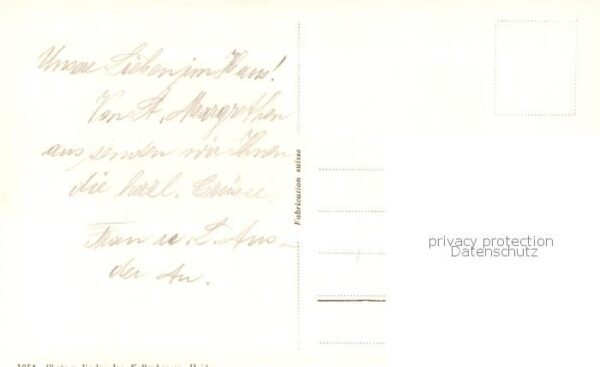 Unsere Lieben im Haus!
Von St. Margrethen
aus senden wir Ihnen
die herzl. Grüsse
Frau u.
der Au.
Fabrication suisse
privacy protection
Datenschutz